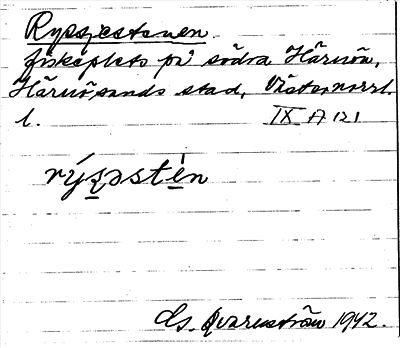 Rysszestenen.
fiskeplats på södra Härnön,
Härnösands stad, Västernorrl.
l. IX A 121
rýs̲ə̲stè̲n
Gs. Qvarnström 1942.